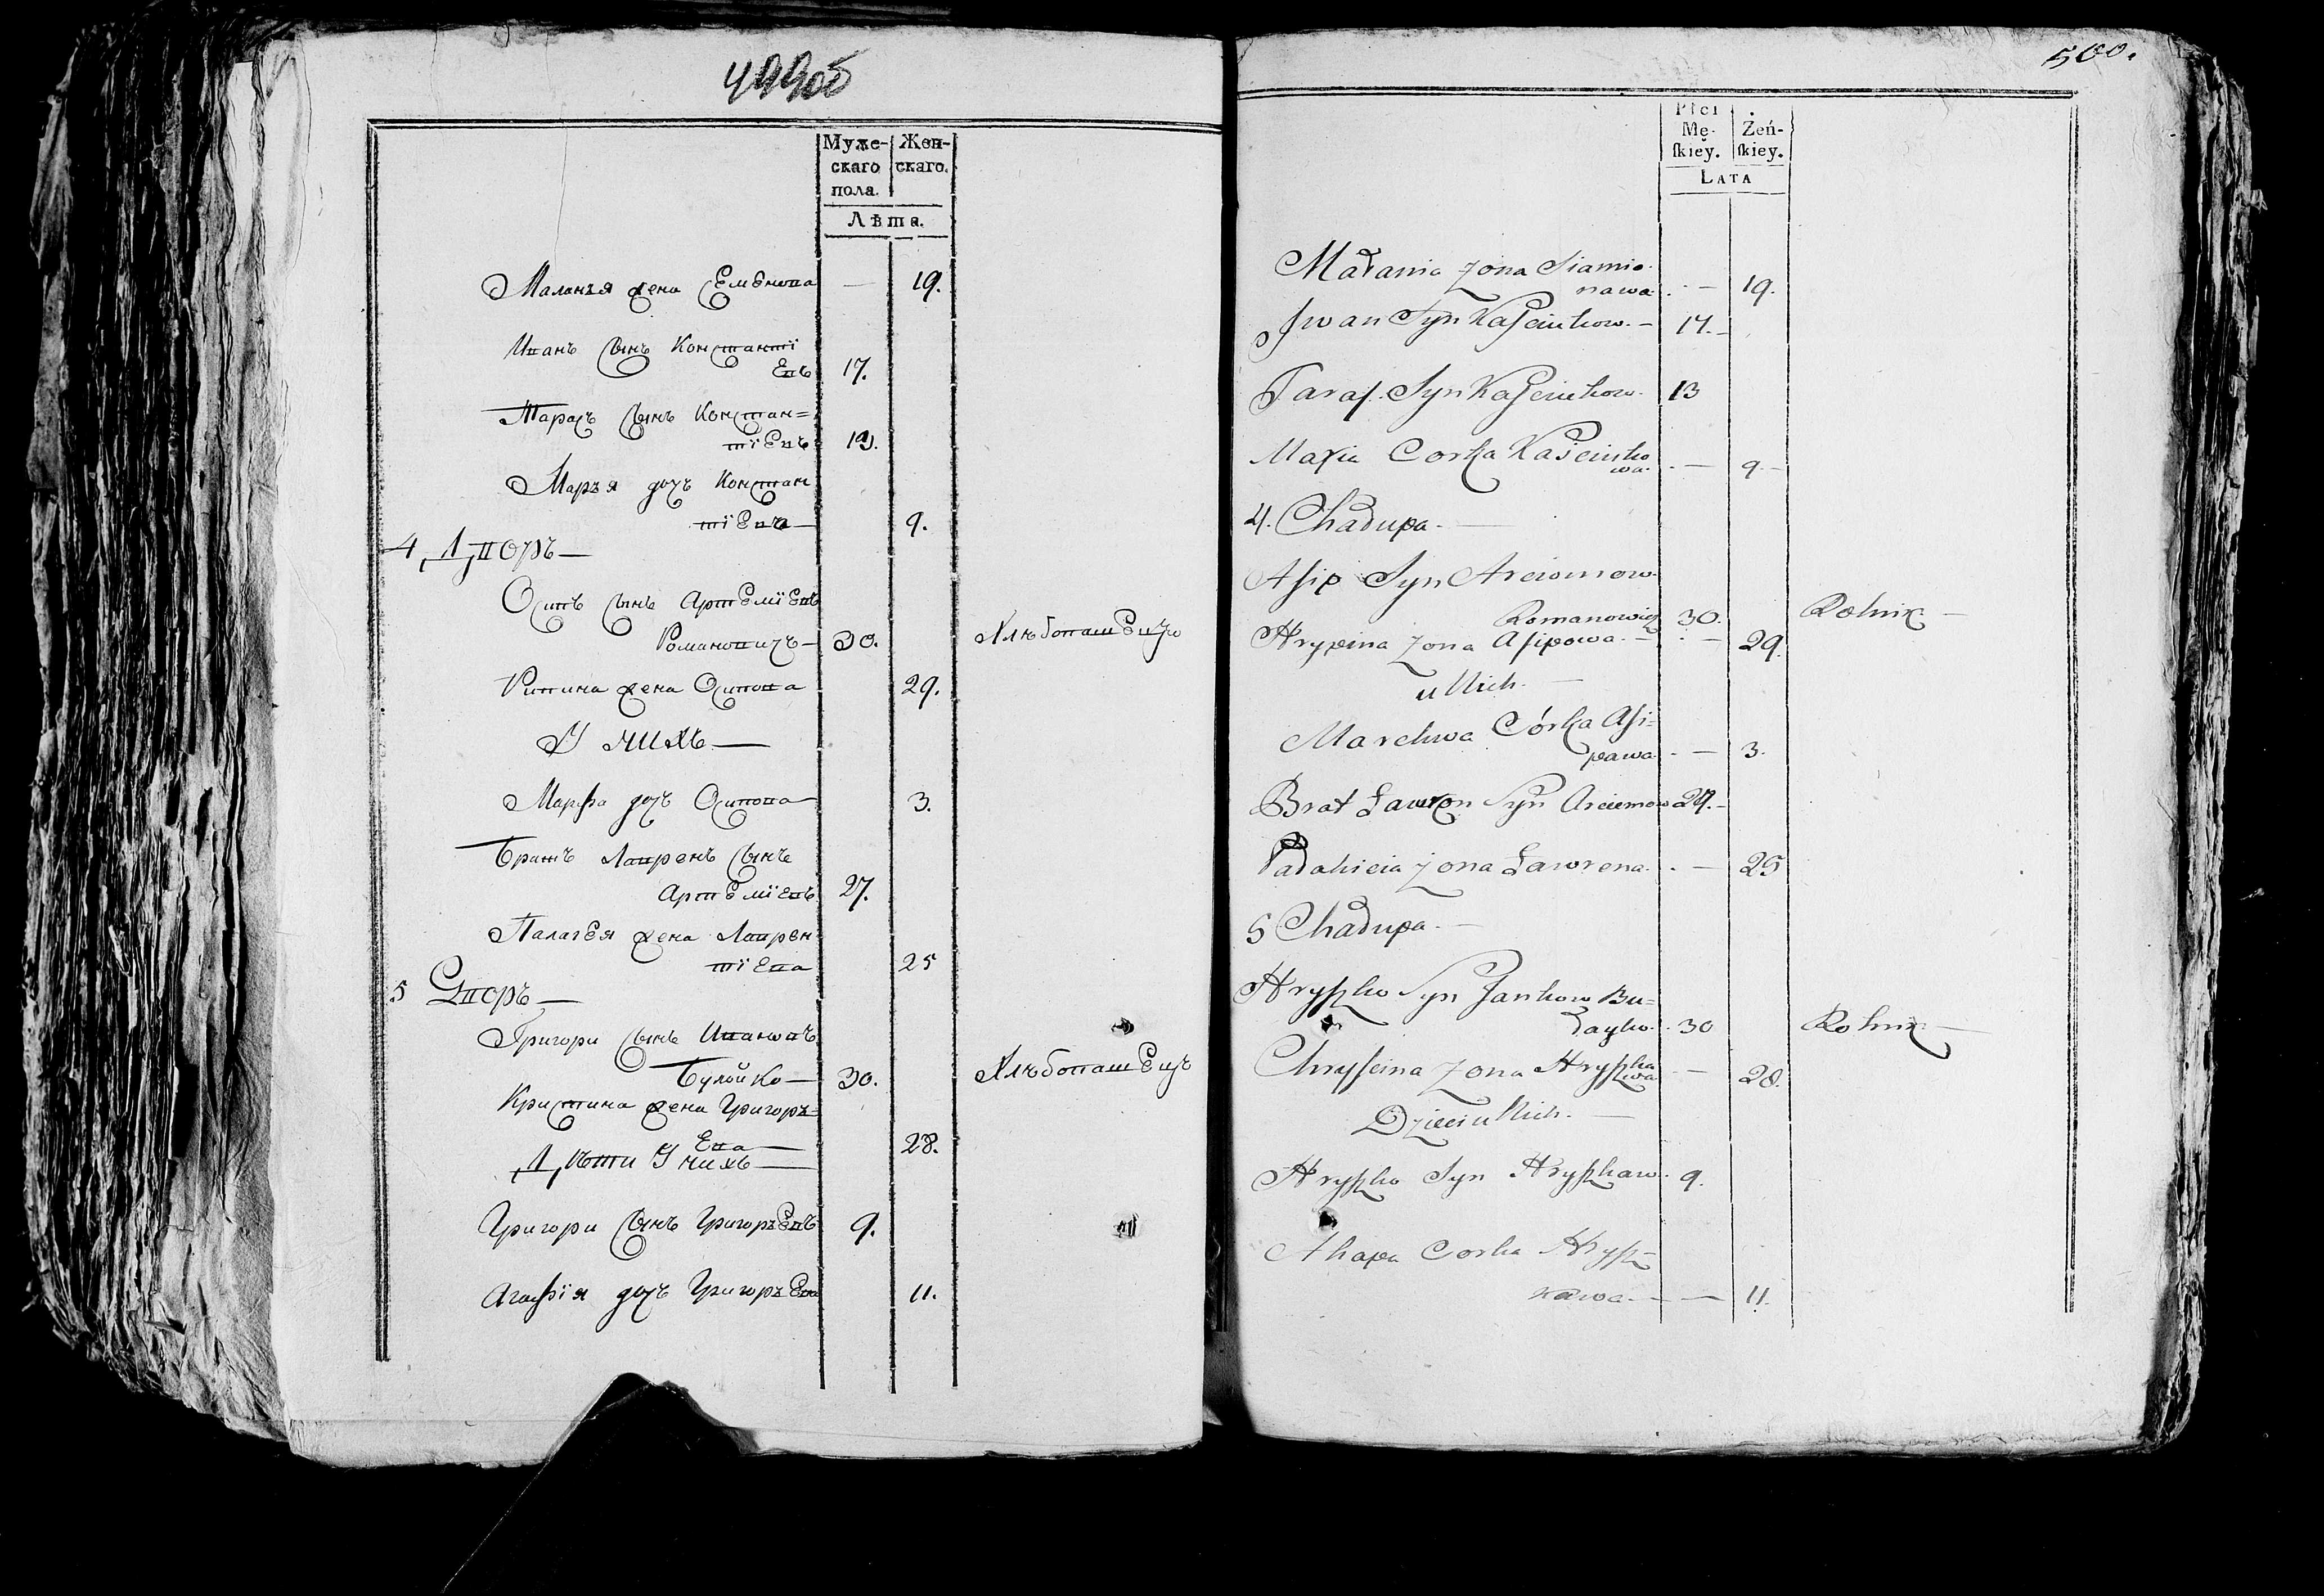 499об
Муже- Жен-
скаго скаго.
пола.
Лѣта.
Маланья жена Семенова — 19.
Иванъ сынъ Константі
евъ 17.
Тарасъ сынъ Констан=
тіевъ 13.
Марья дочь Констан
тіева — 9.
4 Дворъ —
Осипъ сынъ Артеміевъ
Романовичъ — 30. Хлѣбопашецъ
Рипина жена Осипова 29.
У нихъ —
Марфа дочь Осипова 3.
Братъ Лавренъ сынъ
Артеміевъ 27.
Палагея жена Лаврен
тіева 25
5 Дворъ —
Григори сынъ Ивановъ
Булойко — 30. Хлѣбопашецъ
Кристина жена Григорь=
ева — 28.
Дѣти у нихъ —
Григори сынъ Григорьевъ 9.
Агафія дочь Григорьева 11.
500.
Płci
Mę- Żeń-
ſkiey. ſkiey.
LATA
Małania Zona Siamio-
nawa. — 19.
Jwan Syn Kaſciukow. — 17. —
Taraſ. Syn Kaſciukow. 13
Maryia Corka Kaściuko
wa. — 9. —
4. Chałupa. —
Aſip Syn Arciomow.
Romanowicz 30. Rolnik —
Hrypina Zona Aſipowa. — — 29.
u Nich. —
Marchwa Córka Aſi=
pawa. — 3.
Brat Ławron Syn Arciemow 27. —
Pałahieia Zona Ławrena. — 25
5 Chałupa. —
Hryſzko Syn Jankow Bu=
łayko. 30 Rolnik —
Chryſcina Zona Hryſzka
wa — 28.
Dzieci u Nich. —
Hryſzko Syn Hryſzkaw. 9.
Ahapa Corka Hryſz-
kawa. — — 11.